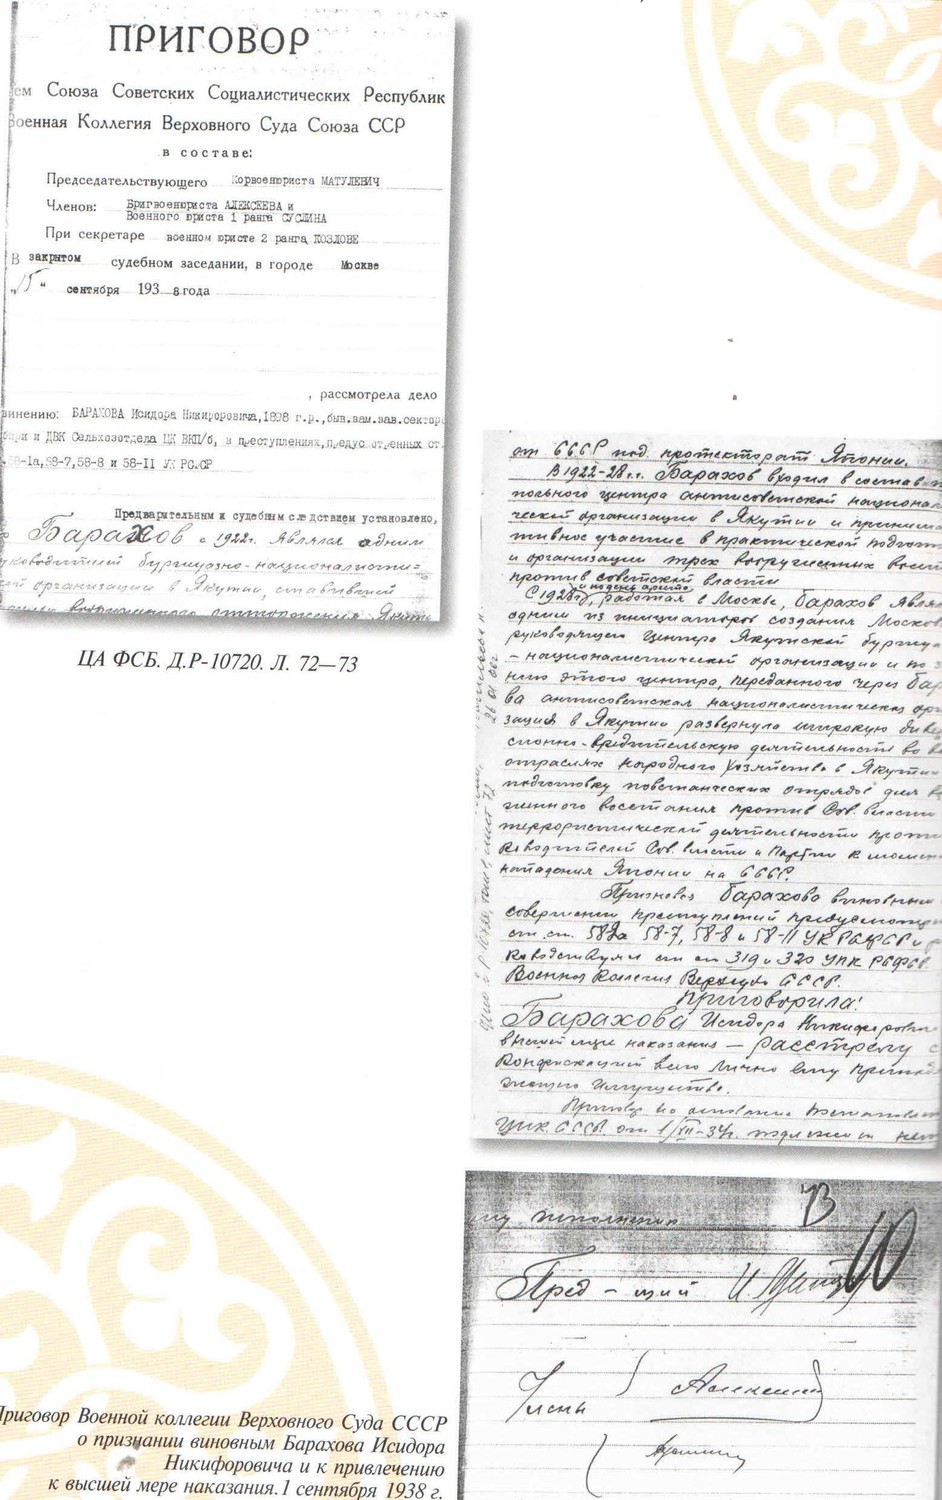 ПРИГОВОР
ем Союза Советских Социалистических Республик
Военная Коллегия Верховного Суда Союза ССР
в составе:
Председательствующего Корвоенюриста МАТУЛЕВИЧ
Членов: Бригвоенюриста АЛЕКСЕЕВА и
Военного юриста 1 ранга СУСЛИНА
При секретаре военном юристе 2 ранга КОЗЛОВЕ
В закрытом судебном заседании, в городе Москве
„15" сентября 1938 года
, рассмотрела дело
винению: БАРАХОВА Исидора Никифоровича, 1898 г.р., быв.зам.зав.сектор
и ДВК Сельхозотдела ЦК ВКП/б, в преступлениях, предусмотренных ст.
58-1а, 58-7, 58-8 и 58-11 УК РСФСР
Предварительным и судебным следствием установлено,
Барахов с 1922г. являлся одним
руководителей буржуазно-националисти=
ой организации в Якутии, ставившей
вооруженного отторжения Якути
ЦА ФСБ. Д.Р-10720. Л. 72—73
от СССР под протекторат Японии.
В 1922-28г.г. Барахов входил в состав
польного центра антисоветской национал
ческой организации в Якутии и принима
тивное участие в практической подгот
и организации трех вооруженных восст
против советской власти
и по день ареста
С 1928г, работая в Москве, Барахов явля
одним из инициаторов создания Москов
руководящего центра Якутской буржуа
- националистической организации и по з
нию этого центра, переданного через Бар
ва антисоветская националистическая орг
зация в Якутии развернула широкую дивер
сионно-вредительскую деятельность во в
отраслях народного хозяйства в Якутии
подготовку повстанческих отрядов для в
женного восстания против Сов. власти
террористической деятельности проти
ководителей Сов. власти и Партии к момен
нападения Японии на СССР.
Признавая Барахова виновным
совершении преступлений предусмотр
ст.ст. 58-1а 58-7, 58-8 и 58-11 УК РСФСР и р
ководствуясь ст ст 319 и 320 УПК РСФСР.
Военная Коллегия Верхсуда СССР.
Приговорила:
Барахова Исидора Никифорови
высшей мере наказания — расстрелу с
Конфискацией всего лично ему принад
жащего имущества.
Приговор на основании постановлен
ЦИК СССР от 1/XII-34г. подлежит нем
му исполнению
73
Пред - щий
Члены
Приговор Военной коллегии Верховного Суда СССР
о признании виновным Барахова Исидора
Никифоровича и к привлечению
к высшей мере наказания. 1 сентября 1938 г.